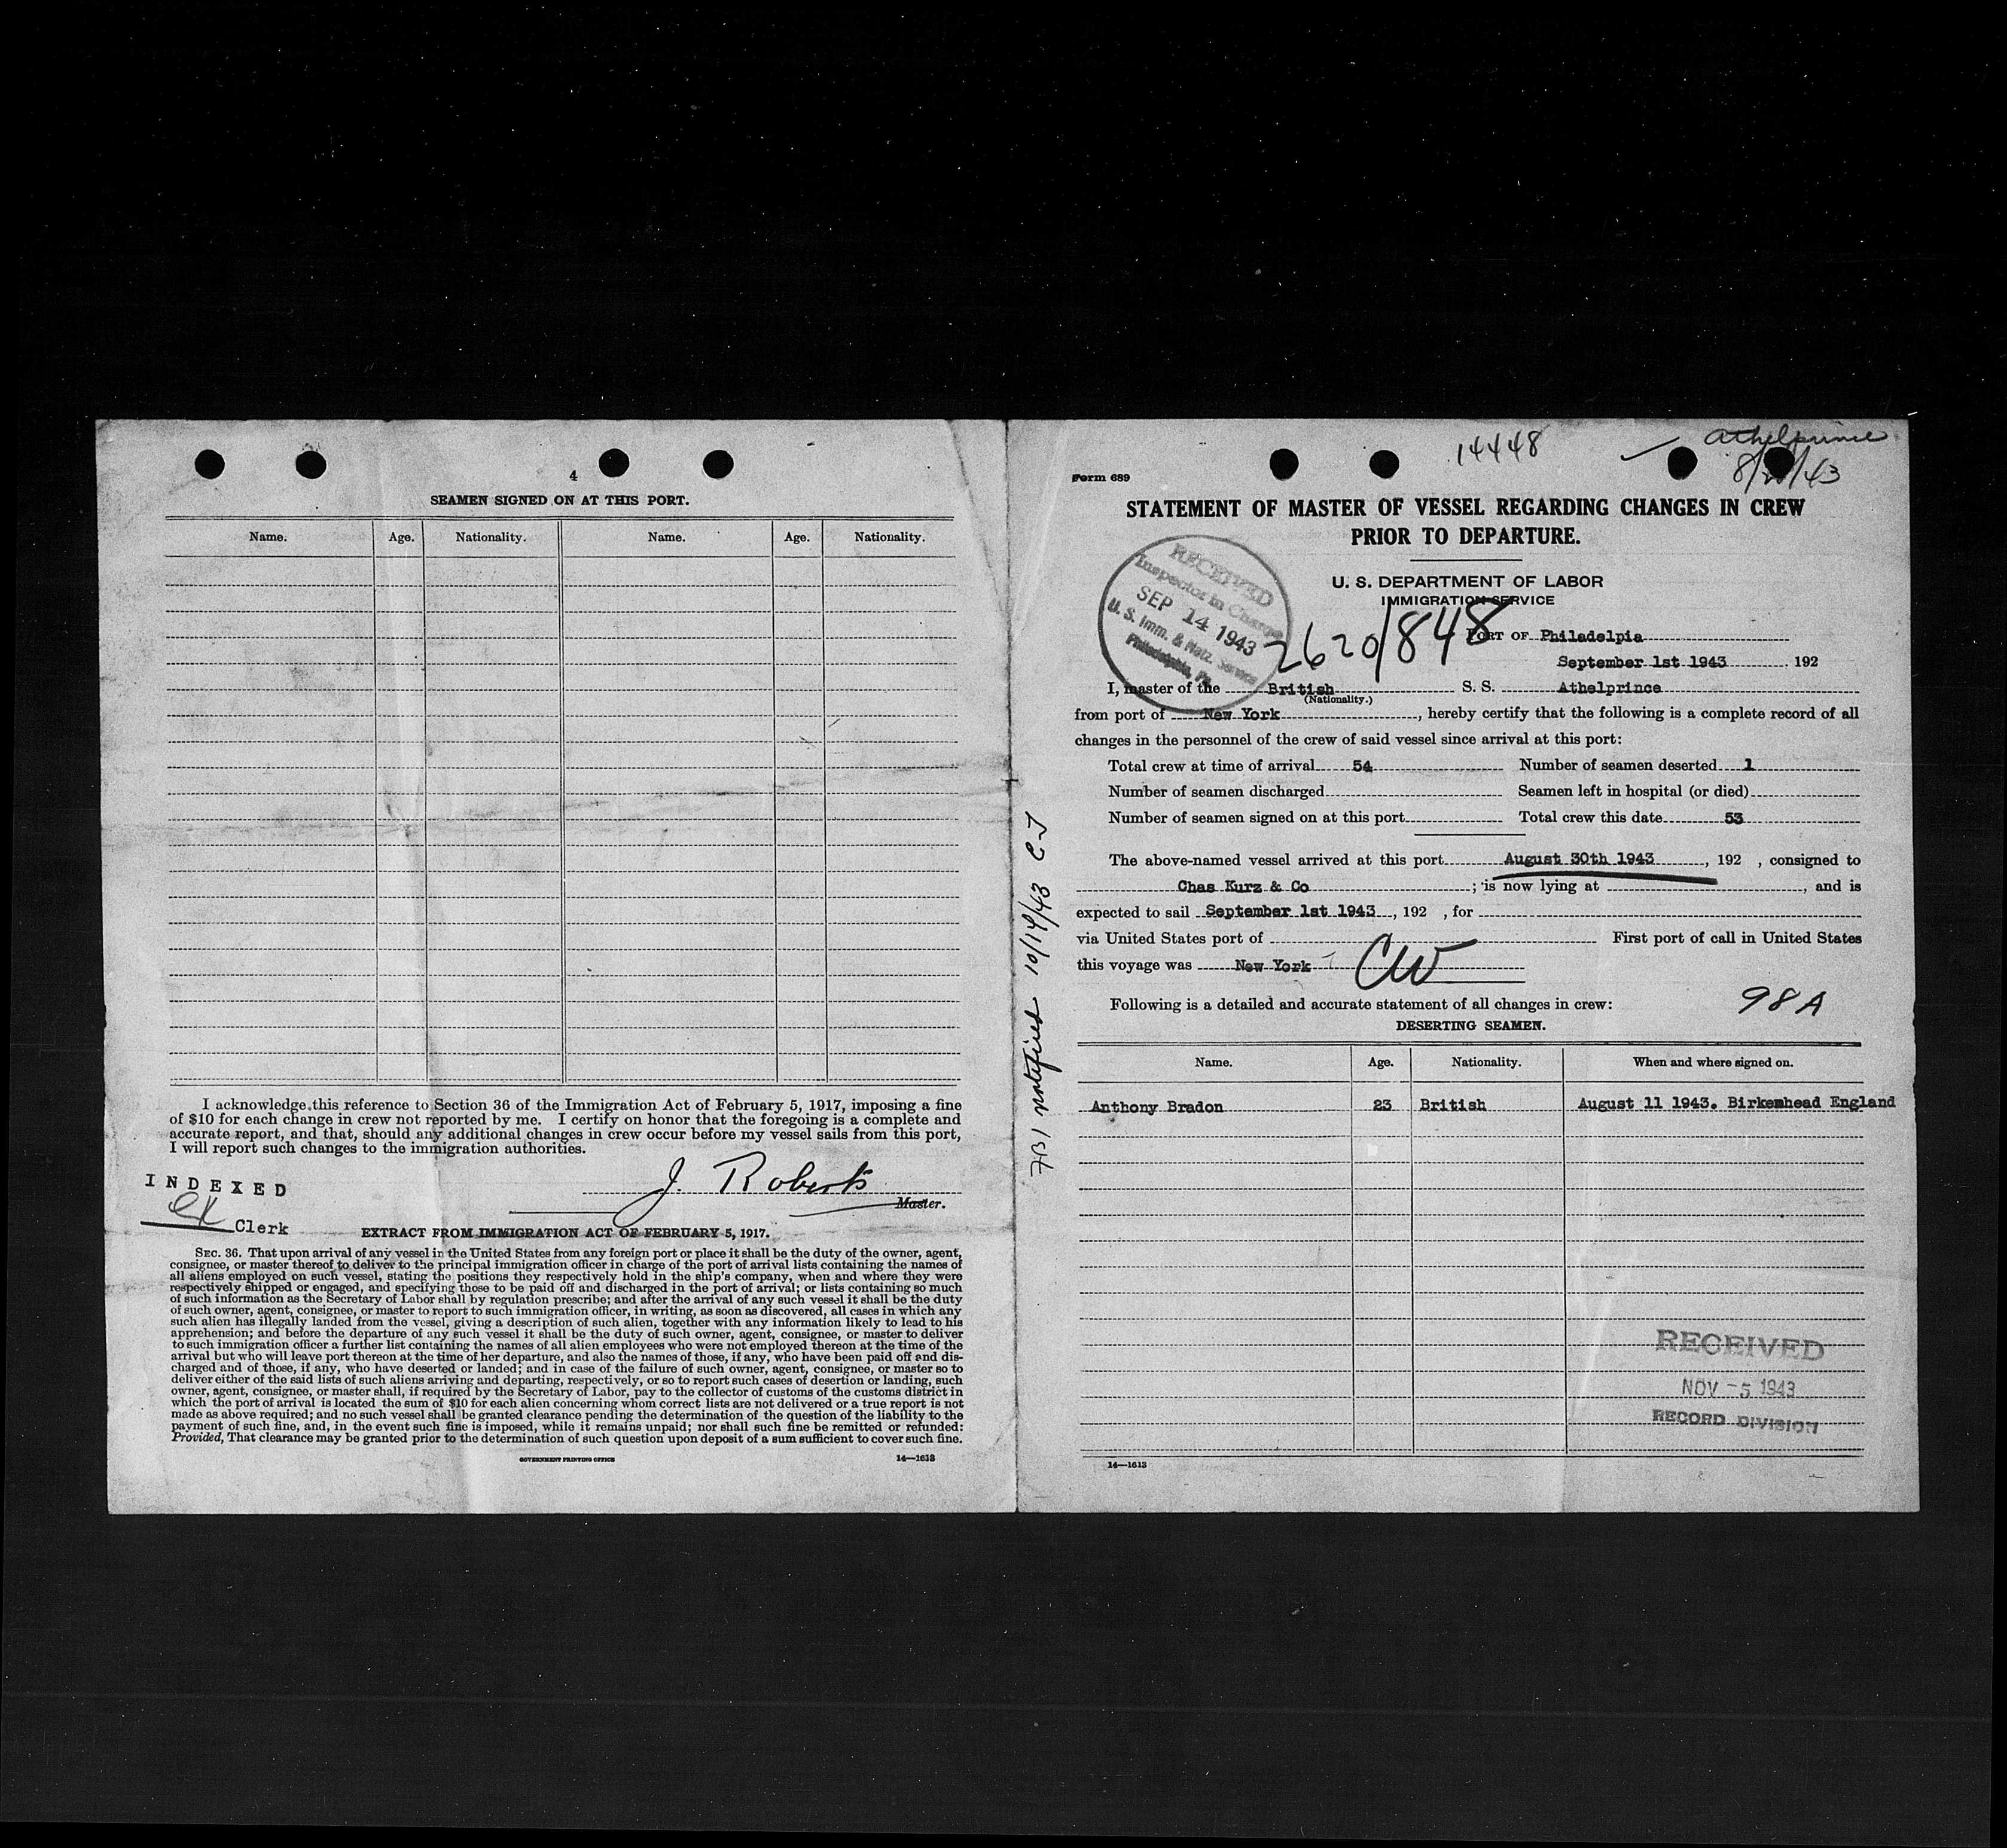 4
SEAMEN SIGNED ON AT THIS PORT.
Name. Age. Nationality. Name. Age. Nationality.
I acknowledge this reference to Section 36 of the Immigration Act of February 5, 1917, imposing a fine
of $10 for each change in crew not reported by me. I certify on honor that the foregoing is a complete and
accurate report, and that, should any additional changes in crew occur before my vessel sails from this port,
I will report such changes to the immigration authorities.
J. Roberts
Master.
INDEXED
Clerk
EXTRACT FROM IMMIGRATION ACT OF FEBRUARY 5, 1917.
SEC. 36. That upon arrival of any vessel in the United States from any foreign port or place it shall be the duty of the owner, agent,
consignee, or master thereof to deliver to the principal immigration officer in charge of the port of arrival lists containing the names of
all aliens employed on such vessel, stating the positions they respectively hold in the ship's company, when and where they were
respectively shipped or engaged, and specifying those to be paid off and discharged in the port of arrival; or lists containing so much
of such information as the Secretary of Labor shall by regulation prescribe; and after the arrival of any such vessel it shall be the duty
of such owner, agent, consignee, or master to report to such immigration officer, in writing, as soon as discovered, all cases in which any
such alien has illegally landed from the vessel, giving a description of such alien, together with any information likely to lead to his
apprehension; and before the departure of any such vessel it shall be the duty of such owner, agent, consignee, or master to deliver
to such immigration officer a further list containing the names of all alien employees who were not employed thereon at the time of the
arrival but who will leave port thereon at the time of her departure, and also the names of those, if any, who have been paid off and dis-
charged and of those, if any, who have deserted or landed; and in case of the failure of such owner, agent, consignee, or master so to
deliver either of the said lists of such aliens arriving and departing, respectively, or so to report such cases of desertion or landing, such
owner, agent, consignee, or master shall, if required by the Secretary of Labor, pay to the collector of customs of the customs district in
which the port of arrival is located the sum of $10 for each alien concerning whom correct lists are not delivered or a true report is not
made as above required; and no such vessel shall be granted clearance pending the determination of the question of the liability to the
payment of such fine, and, in the event such fine is imposed, while it remains unpaid; nor shall such fine be remitted or refunded:
Provided, That clearance may be granted prior to the determination of such question upon deposit of a sum sufficient to cover such fine.
GOVERNMENT PRINTING OFFICE 14—1613
FBI notified 10/14/43 C.J
14448
Athelprince
Form 689
STATEMENT OF MASTER OF VESSEL REGARDING CHANGES IN CREW
PRIOR TO DEPARTURE.
U. S. DEPARTMENT OF LABOR
IMMIGRATION SERVICE
RECEIVED
Inspector in Charge
SEP 14 1943
U. S. Imm. & Natz. Service
Philadelphia, Pa.
2620/848
PORT OF Philadelpia
September 1st 1943 192
I, master of the British S. S. Athelprince
(Nationality.)
from port of New York, hereby certify that the following is a complete record of all
changes in the personnel of the crew of said vessel since arrival at this port:
Total crew at time of arrival 54 Number of seamen deserted 1
Number of seamen discharged Seamen left in hospital (or died)
Number of seamen signed on at this port Total crew this date 53
The above-named vessel arrived at this port August 30th 1943, 192 , consigned to
Chas Kurz & Co ; is now lying at , and is
expected to sail September 1st 1943, 192 , for
via United States port of First port of call in United States
this voyage was New York CW
Following is a detailed and accurate statement of all changes in crew:
98A
DESERTING SEAMEN.
Name. Age. Nationality. When and where signed on.
Anthony Bradon 23 British August 11 1943. Birkemhead England
RECEIVED
NOV -5 1943
RECORD DIVISION
14—1613